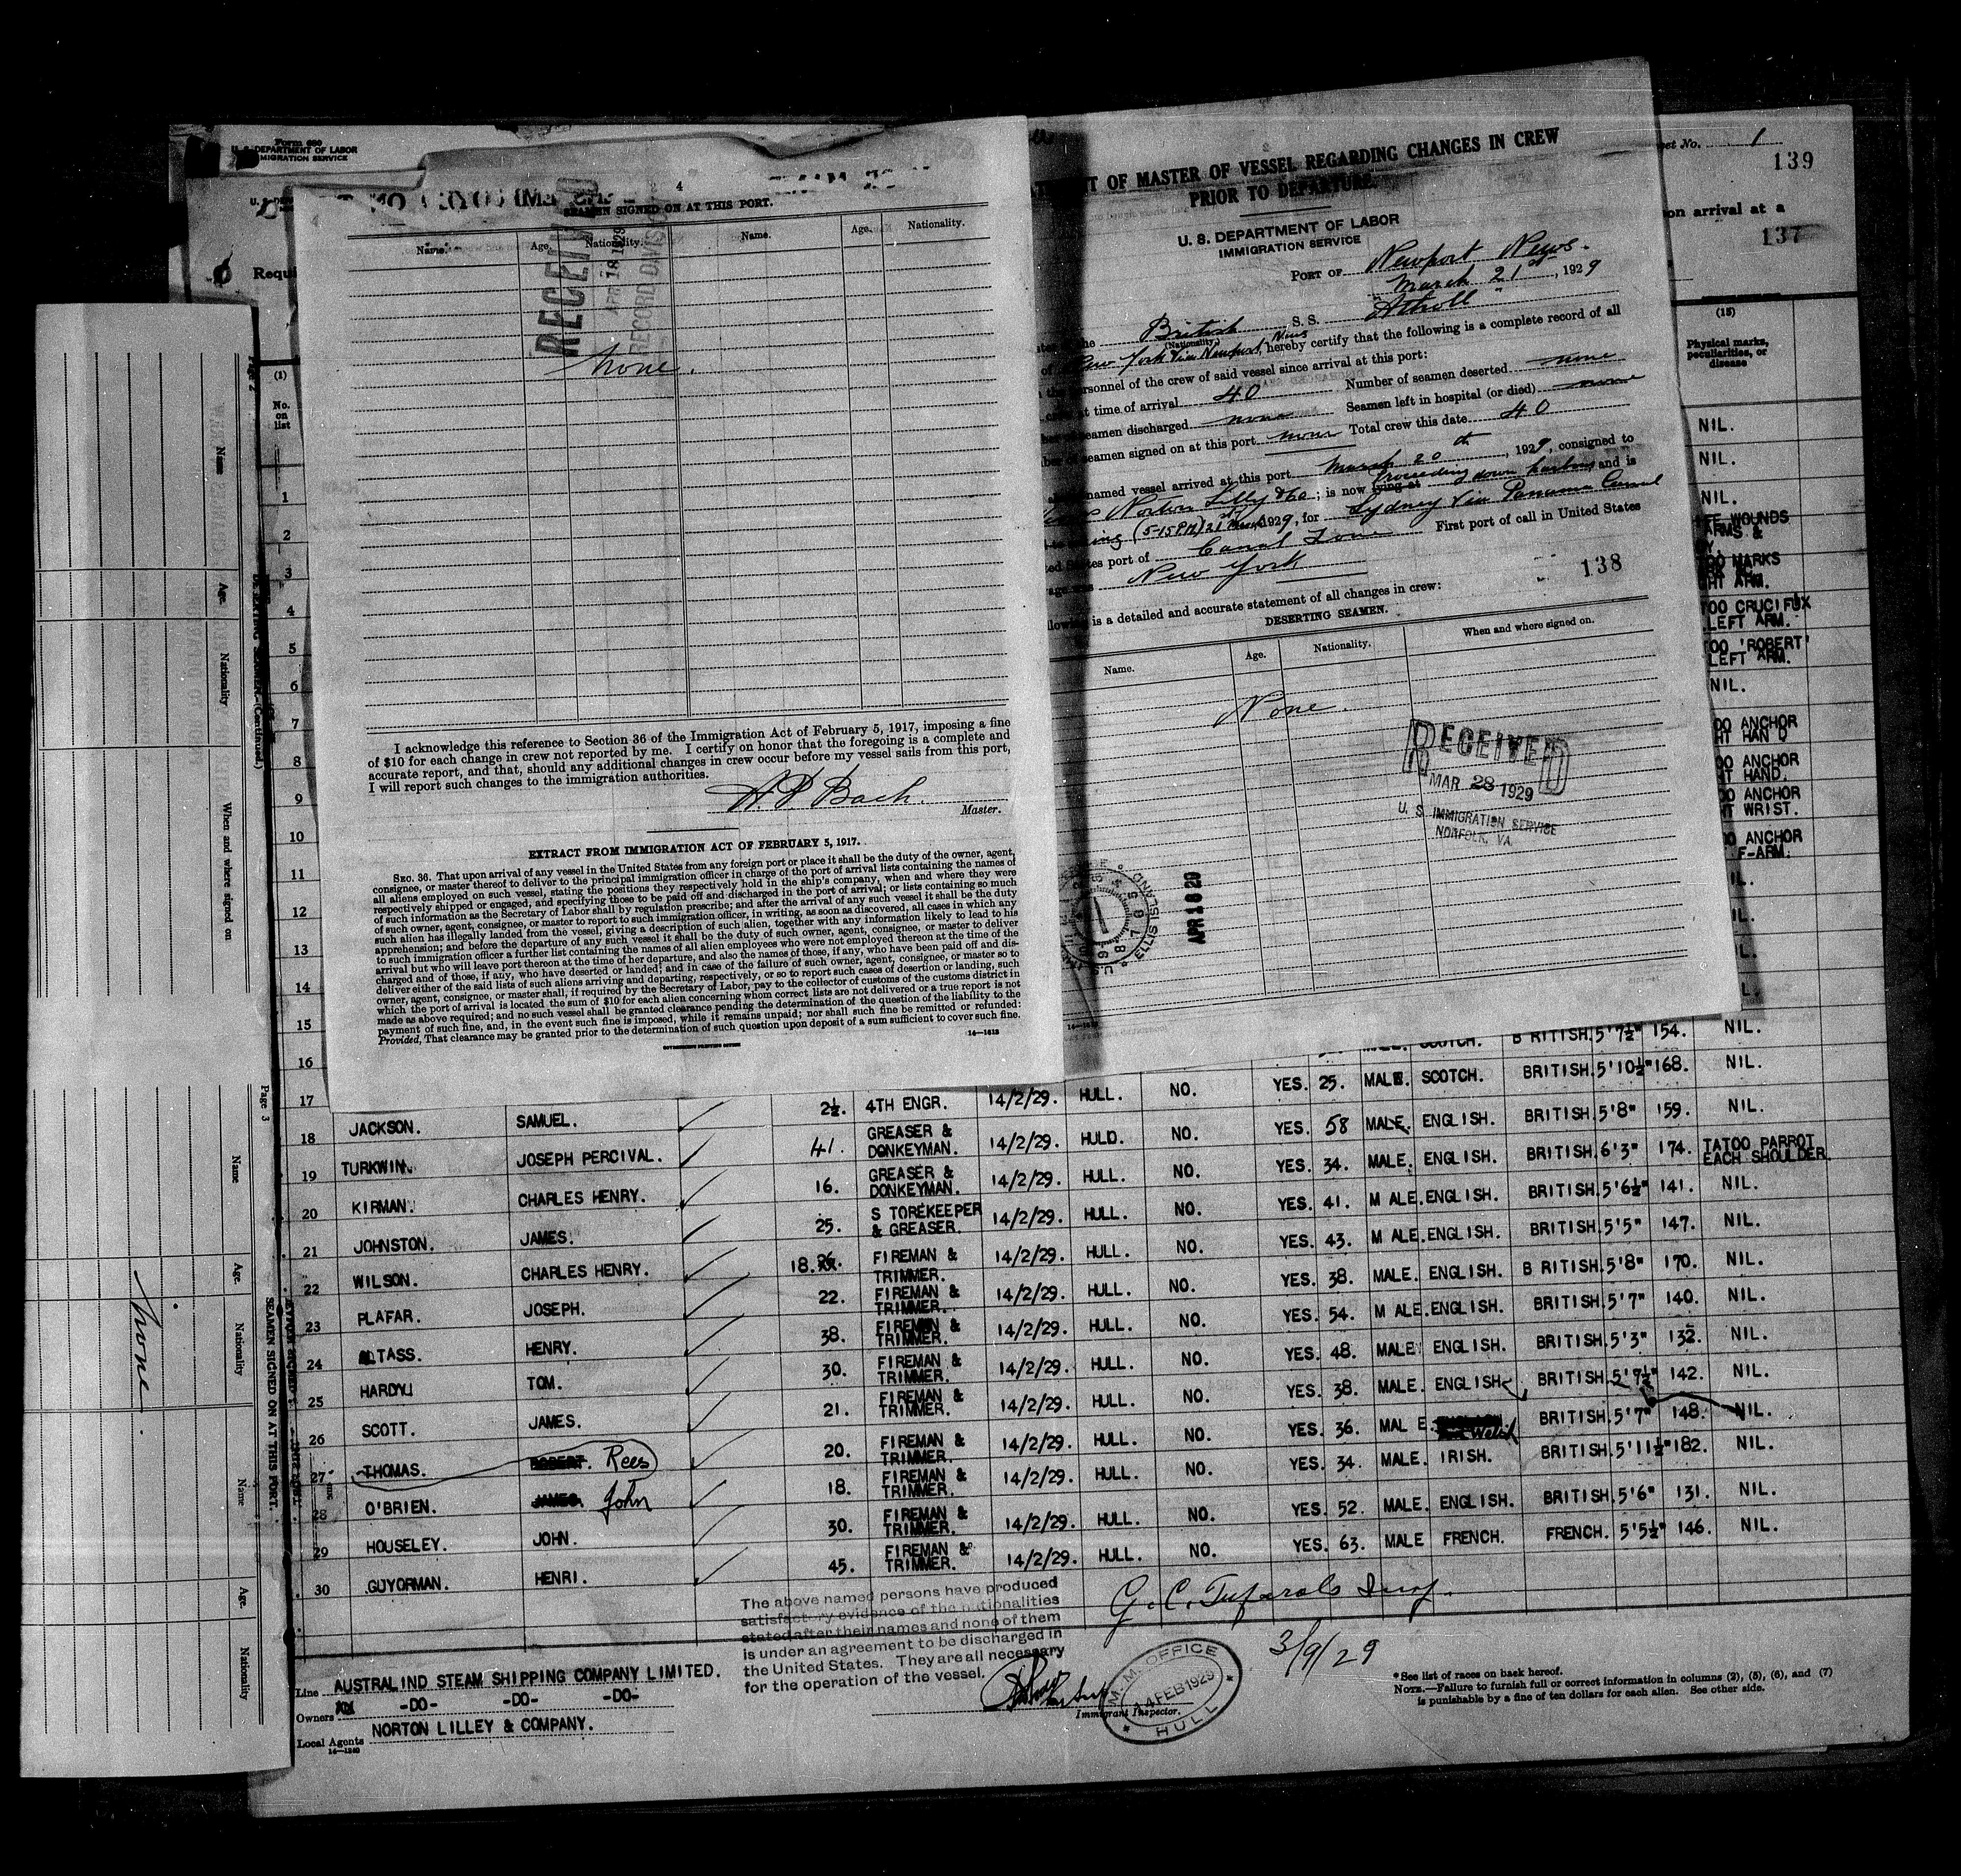 Form 680
U. S. DEPARTMENT OF LABOR
IMMIGRATION SERVICE
4
SEAMEN SIGNED ON AT THIS PORT.
Name. Age. Nationality. Name. Age. Nationality.
RECEIVED
APR 18 1929
RECORD DIVIS
None.
I acknowledge this reference to Section 36 of the Immigration Act of February 5, 1917, imposing a fine
of $10 for each change in crew not reported by me. I certify on honor that the foregoing is a complete and
accurate report, and that, should any additional changes in crew occur before my vessel sails from this port,
I will report such changes to the immigration authorities.
Master.
EXTRACT FROM IMMIGRATION ACT OF FEBRUARY 5, 1917.
SEC. 36. That upon arrival of any vessel in the United States from any foreign port or place it shall be the duty of the owner, agent,
consignee, or master thereof to deliver to the principal immigration officer in charge of the port of arrival lists containing the names of
all aliens employed on such vessel, stating the positions they respectively hold in the ship's company, when and where they were
respectively shipped or engaged, and specifying those to be paid off and discharged in the port of arrival; or lists containing so much
of such information as the Secretary of Labor shall by regulation prescribe; and after the arrival of any such vessel it shall be the duty
of such owner, agent, consignee, or master to report to such immigration officer, in writing, as soon as discovered, all cases in which any
such alien has illegally landed from the vessel, giving a description of such alien, together with any information likely to lead to his
apprehension; and before the departure of any such vessel it shall be the duty of such owner, agent, consignee, or master to deliver
to such immigration officer a further list containing the names of all alien employees who were not employed thereon at the time of the
arrival but who will leave port thereon at the time of her departure, and also the names of those, if any, who have been paid off and dis-
charged and of those, if any, who have deserted or landed; and in case of the failure of such owner, agent, consignee, or master so to
deliver either of the said lists of such aliens arriving and departing, respectively, or so to report such cases of desertion or landing, such
owner, agent, consignee, or master shall, if required by the Secretary of Labor, pay to the collector of customs of the customs district in
which the port of arrival is located the sum of $10 for each alien concerning whom correct lists are not delivered or a true report is not
made as above required; and no such vessel shall be granted clearance pending the determination of the question of the liability to the
payment of such fine, and, in the event such fine is imposed, while it remains unpaid; nor shall such fine be remitted or refunded:
Provided, That clearance may be granted prior to the determination of such question upon deposit of a sum sufficient to cover such fine.
GOVERNMENT PRINTING OFFICE
OF MASTER OF VESSEL REGARDING CHANGES IN CREW
PRIOR TO DEPARTURE.
U. S. DEPARTMENT OF LABOR
IMMIGRATION SERVICE
PORT OF Newport News.
March 21st, 1929
British S. S. "Atholl"
(Nationality)
New York Via Newport News, hereby certify that the following is a complete record of all
personnel of the crew of said vessel since arrival at this port:
at time of arrival 40 Number of seamen deserted none
seamen discharged none Seamen left in hospital (or died) none
seamen signed on at this port none Total crew this date 40
named vessel arrived at this port March 20th, 1929, consigned to
Norton Lilly & Co; is now lying at Proceeding down harbour and is
(5-15PM) 21st March 1929, for Sydney Via Panama Canal
port of Canal Zone First port of call in United States
New York
138
is a detailed and accurate statement of all changes in crew:
DESERTING SEAMEN.
Name. Age. Nationality. When and where signed on.
None.
RECEIVED
MAR 28 1929
U. S. IMMIGRATION SERVICE
NORFOLK, VA.
ELLIS ISLAND
APR 18 20
Sheet No. 1
139
on arrival at a
137
(15)
Physical marks, peculiarities, or disease
NIL.
NIL.
NIL.
WOUNDS
ARMS &
MARKS
ARM.
CRUCIFIX
LEFT ARM.
'ROBERT'
LEFT ARM.
NIL.
ANCHOR
HAND
ANCHOR
HAND.
ANCHOR
WRIST.
ANCHOR
F-ARM.
(1)
No. on list
1
2
3
4
5
6
7
8
9
10
11
12
13
14
15
16
SCOTCH. BRITISH. 5'7½" 154. NIL.
17 JACKSON. SAMUEL. 2½. 4TH ENGR. 14/2/29. HULL. NO. YES. 25. MALE. SCOTCH. BRITISH. 5'10½" 168. NIL.
18 TURKWIN. JOSEPH PERCIVAL. 41. GREASER & DONKEYMAN. 14/2/29. HULL. NO. YES. 58 MALE. ENGLISH. BRITISH. 5'8" 159. NIL.
19 KIRMAN. CHARLES HENRY. 16. GREASER & DONKEYMAN. 14/2/29. HULL. NO. YES. 34. MALE. ENGLISH. BRITISH. 6'3" 174. TATOO PARROT EACH SHOULDER.
20 JOHNSTON. JAMES. 25. STOREKEEPER & GREASER. 14/2/29. HULL. NO. YES. 41. MALE. ENGLISH. BRITISH. 5'6½" 141. NIL.
21 WILSON. CHARLES HENRY. 18. FIREMAN & TRIMMER. 14/2/29. HULL. NO. YES. 43. MALE. ENGLISH. BRITISH. 5'5" 147. NIL.
22 PLAFAR. JOSEPH. 22. FIREMAN & TRIMMER. 14/2/29. HULL. NO. YES. 38. MALE. ENGLISH. BRITISH. 5'8" 170. NIL.
23 TASS. HENRY. 38. FIREMAN & TRIMMER. 14/2/29. HULL. NO. YES. 54. MALE. ENGLISH. BRITISH. 5'7" 140. NIL.
24 HARDY. TOM. 30. FIREMAN & TRIMMER. 14/2/29. HULL. NO. YES. 48. MALE ENGLISH. BRITISH. 5'3" 132. NIL.
25 SCOTT. JAMES. 21. FIREMAN & TRIMMER. 14/2/29. HULL. NO. YES. 38. MALE. ENGLISH BRITISH. 5'7½" 142. NIL.
26 THOMAS. ROBERT. Rees 20. FIREMAN & TRIMMER. 14/2/29. HULL. NO. YES. 36. MALE Welsh BRITISH. 5'7" 148. NIL.
27 O'BRIEN. JAMES. John 18. FIREMAN & TRIMMER. 14/2/29. HULL. NO. YES. 34. MALE. IRISH. BRITISH. 5'11½" 182. NIL.
28 HOUSELEY. JOHN. 30. FIREMAN & TRIMMER. 14/2/29. HULL. NO. YES. 52. MALE. ENGLISH. BRITISH. 5'6" 131. NIL.
29 GUYORMAN. HENRI. 45. FIREMAN & TRIMMER. 14/2/29. HULL. NO. YES. 63. MALE FRENCH. FRENCH. 5'5½" 146. NIL.
30
The above named persons have produced
satisfactory evidence of the nationalities
stated after their names and none of them
is under an agreement to be discharged in
the United States. They are all necessary
for the operation of the vessel.
Immigrant Inspector.
3/9/29
M.M. OFFICE
14 FEB 1929
HULL
Line AUSTRALIND STEAM SHIPPING COMPANY LIMITED.
Owners -DO- -DO- -DO-
Local Agents NORTON LILLEY & COMPANY.
14—1240
* See list of races on back hereof.
NOTE.—Failure to furnish full or correct information in columns (2), (5), (6), and (7)
is punishable by a fine of ten dollars for each alien. See other side.
Page 2
Name Age. Nationality When and where signed on
DESERTING SEAMEN—(Continued.)
Page 3
Name Age. Nationality Name Age. Nationality
SEAMEN SIGNED ON AT THIS PORT.
None.